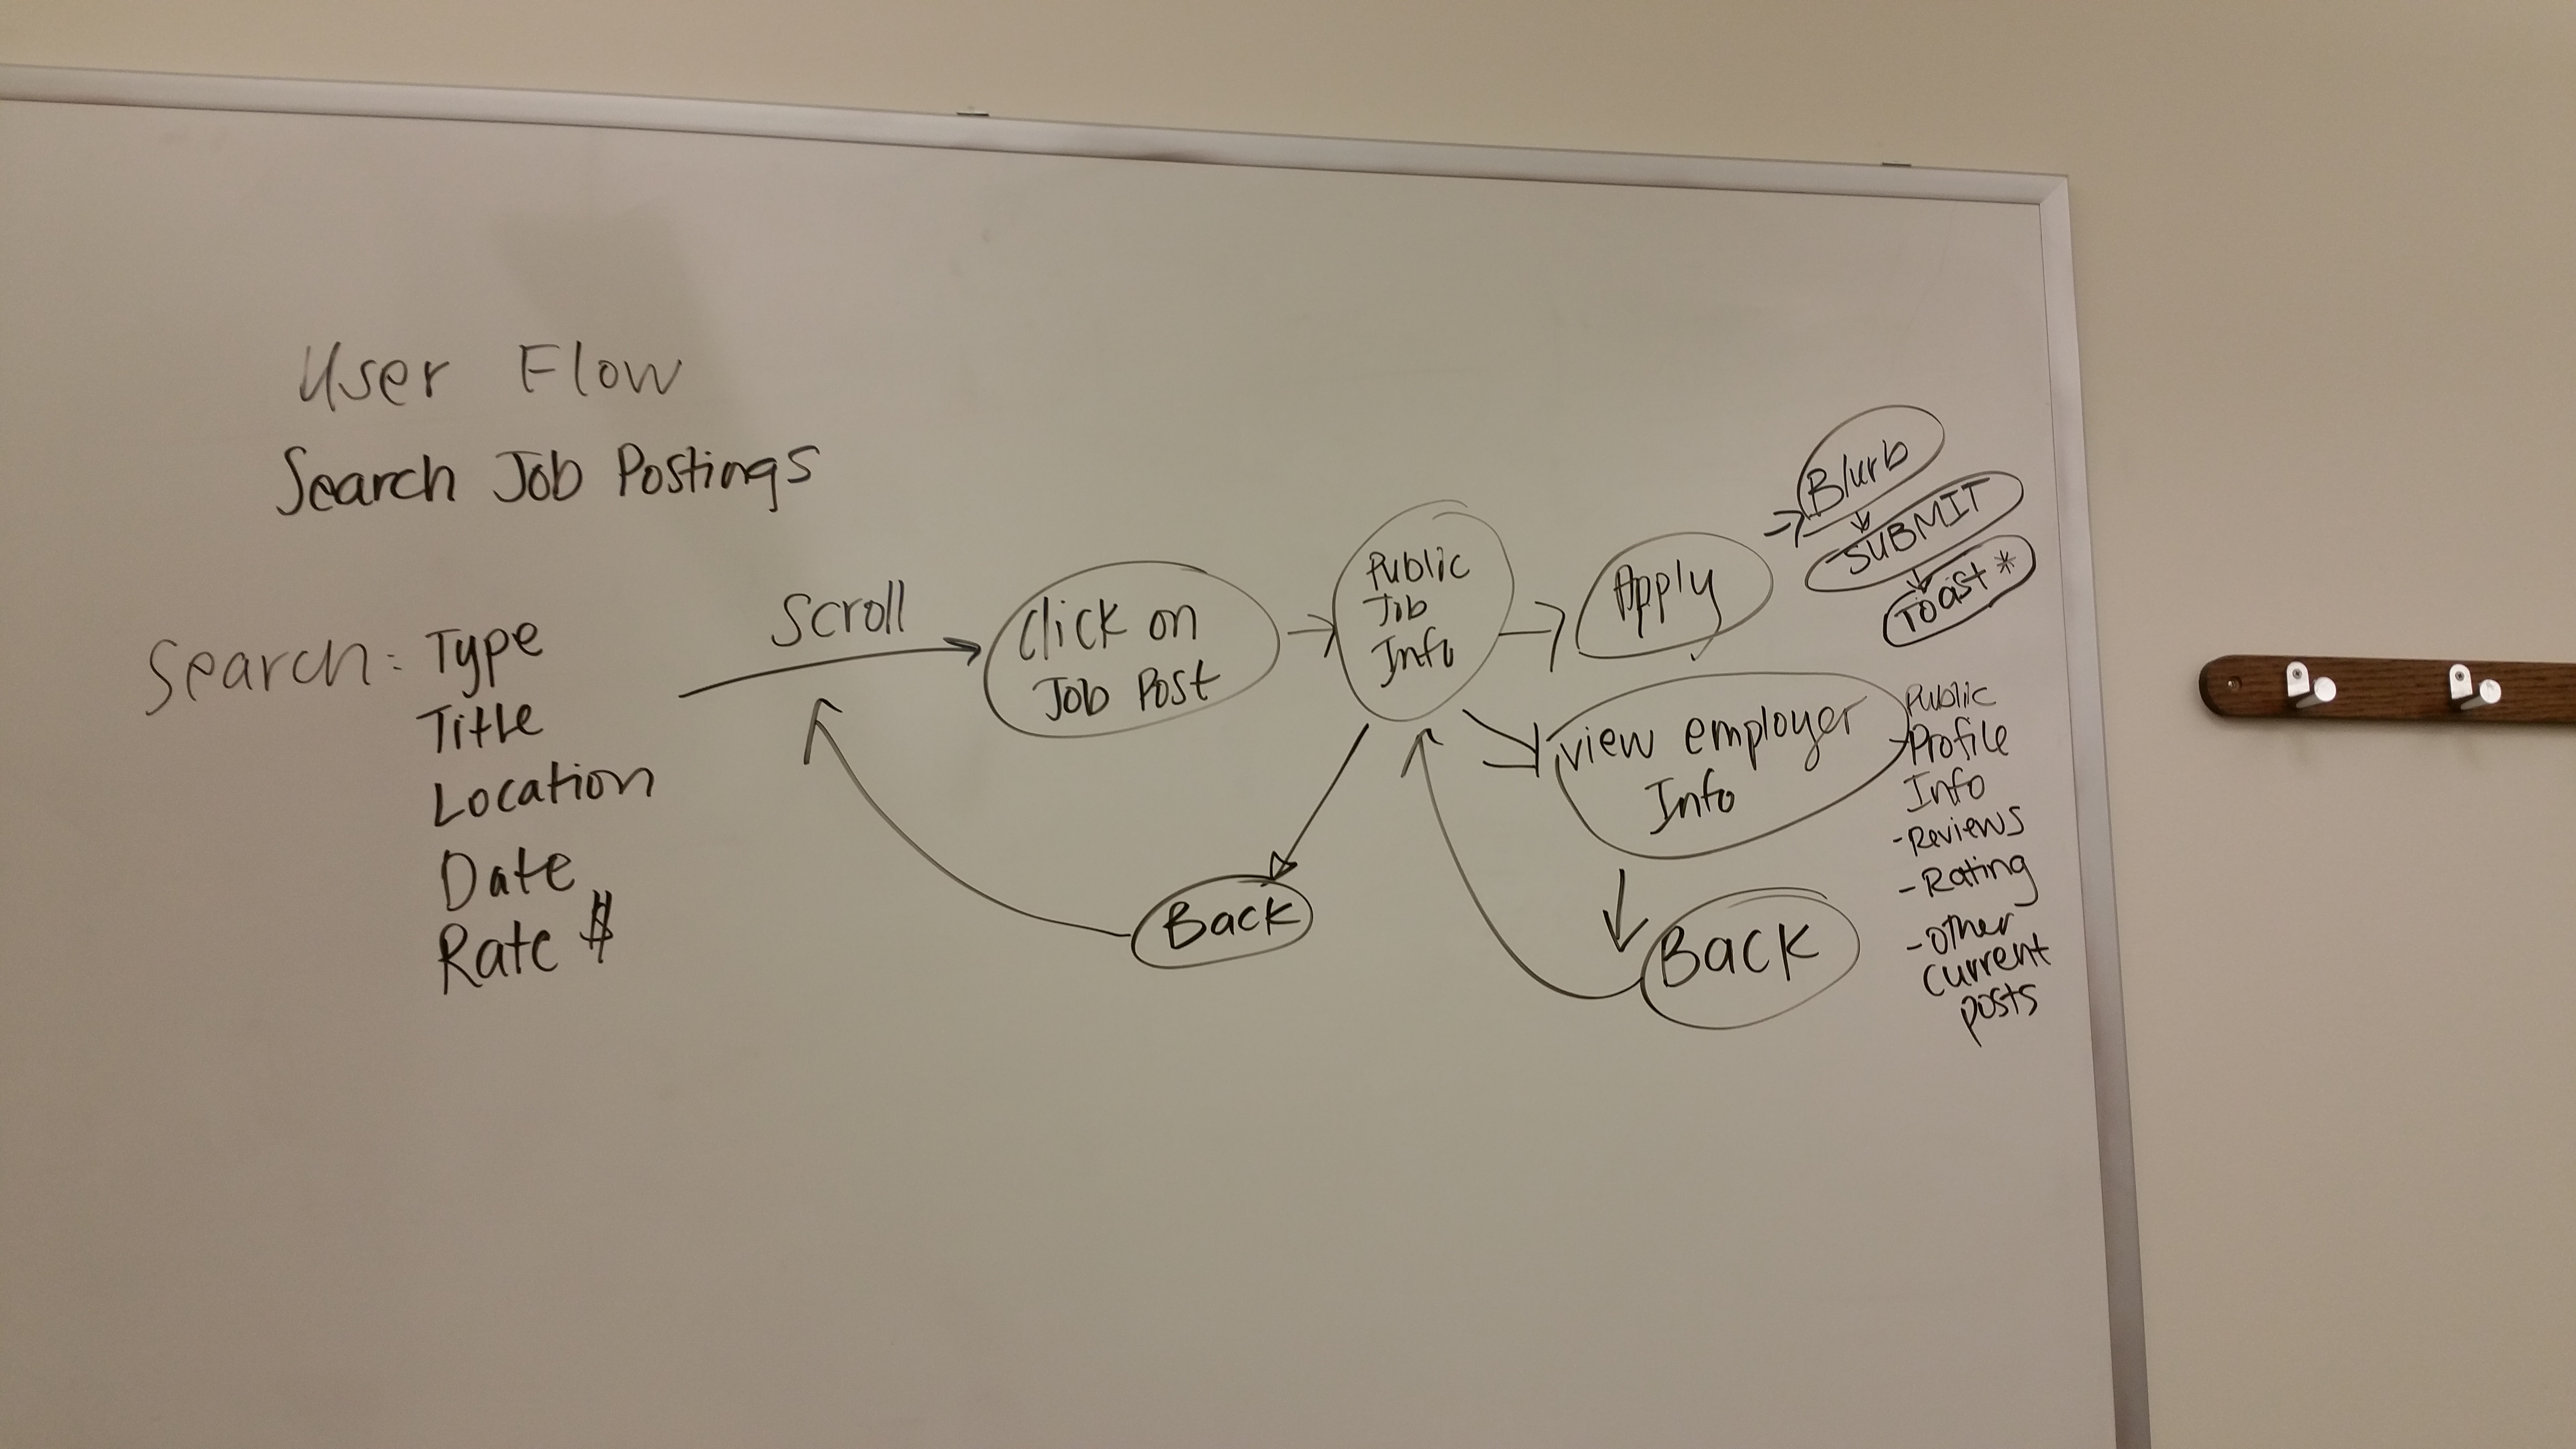 User Flow
Search Job Postings
Search: Type
Title
Location
Date
Rate $
Scroll
Click on
Job Post
Public
Job
Info
Back
Apply
Blurb
SUBMIT
Toast *
view employer
Info
Back
Public
Profile
Info
- Reviews
- Rating
- other
current
posts